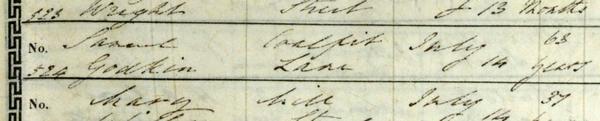 523 Wright Street of 13 Months
No. Samuel Coalpit July 63
524 Godkin Lane of 14 years
No. Mary Mill July 37